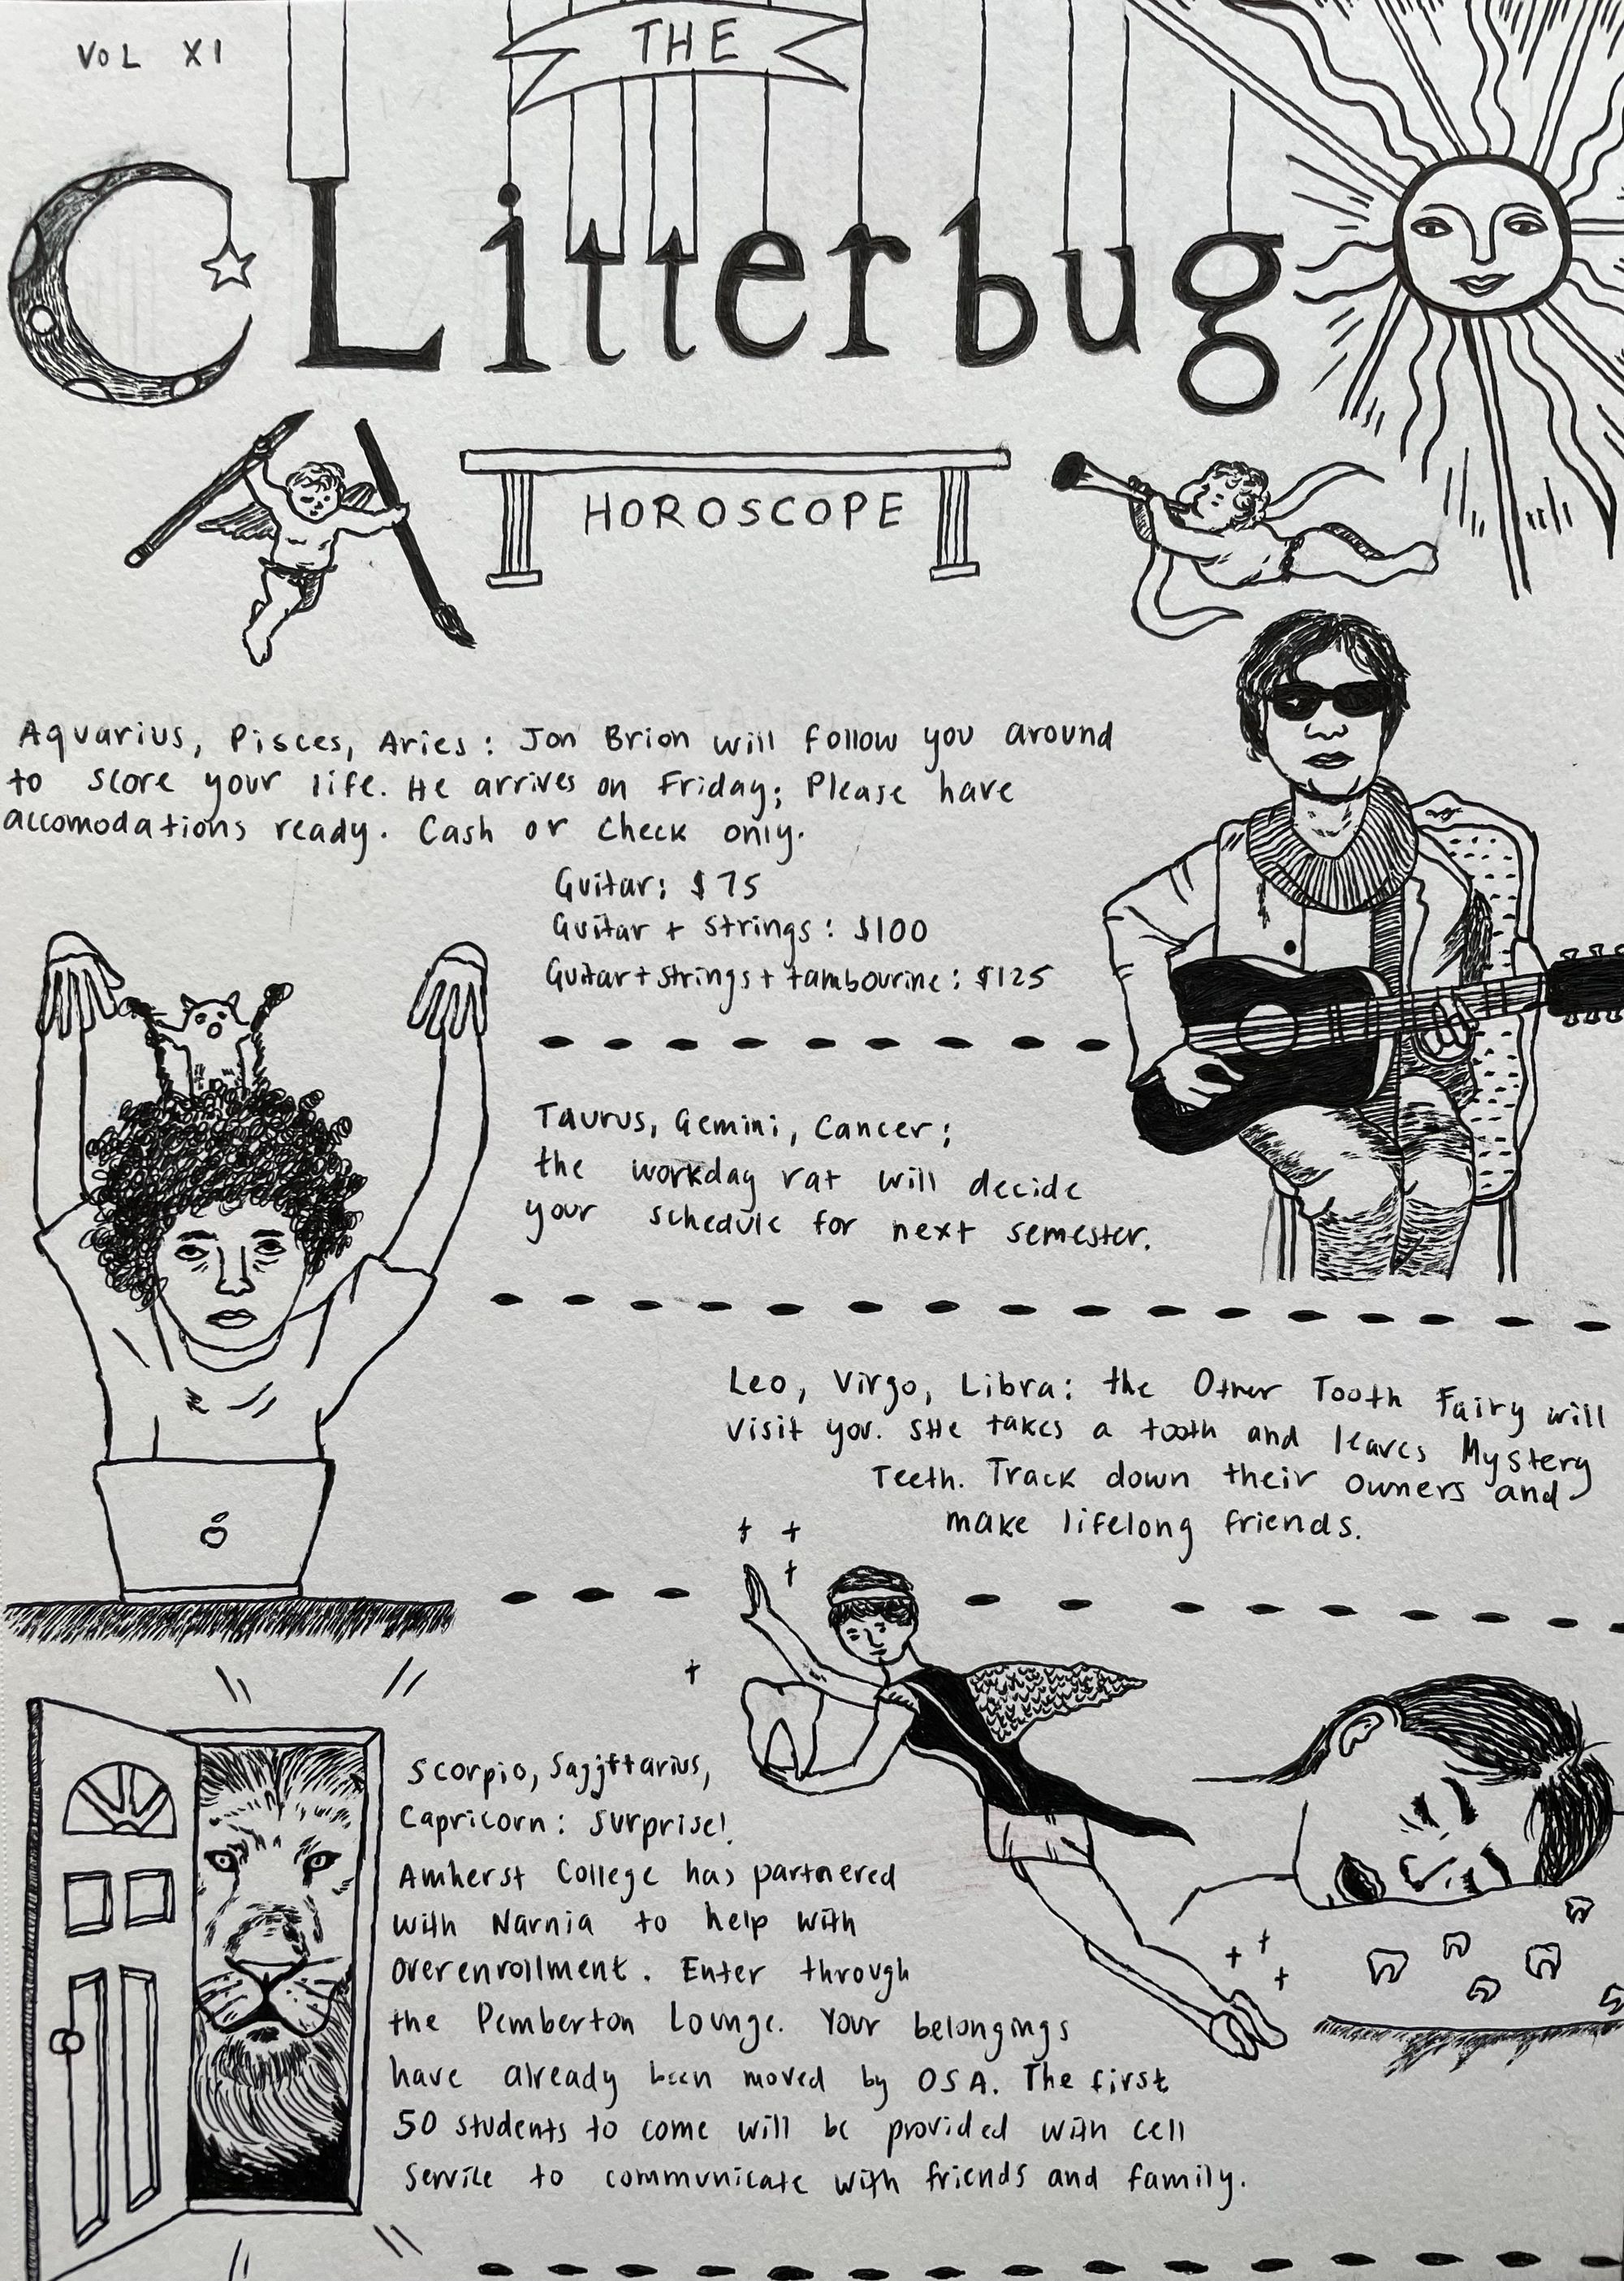 VOL XI
THE
Litterbug
HOROSCOPE
Aquarius, Pisces, Aries: Jon Brion will follow you around
to score your life. He arrives on Friday; Please have
accomodations ready. Cash or check only.
Guitar: $75
Guitar + strings: $100
Guitar + strings + tambourine: $125
Taurus, Gemini, Cancer:
the workday rat will decide
your schedule for next semester.
Leo, Virgo, Libra: the Other Tooth Fairy will
visit you. SHe takes a tooth and leaves Mystery
Teeth. Track down their owners and
make lifelong friends.
Scorpio, Sagittarius,
Capricorn: Surprise!
Amherst College has partnered
with Narnia to help with
overenrollment. Enter through
the Pemberton Lounge. Your belongings
have already been moved by OSA. The first
50 students to come will be provided with cell
service to communicate with friends and family.